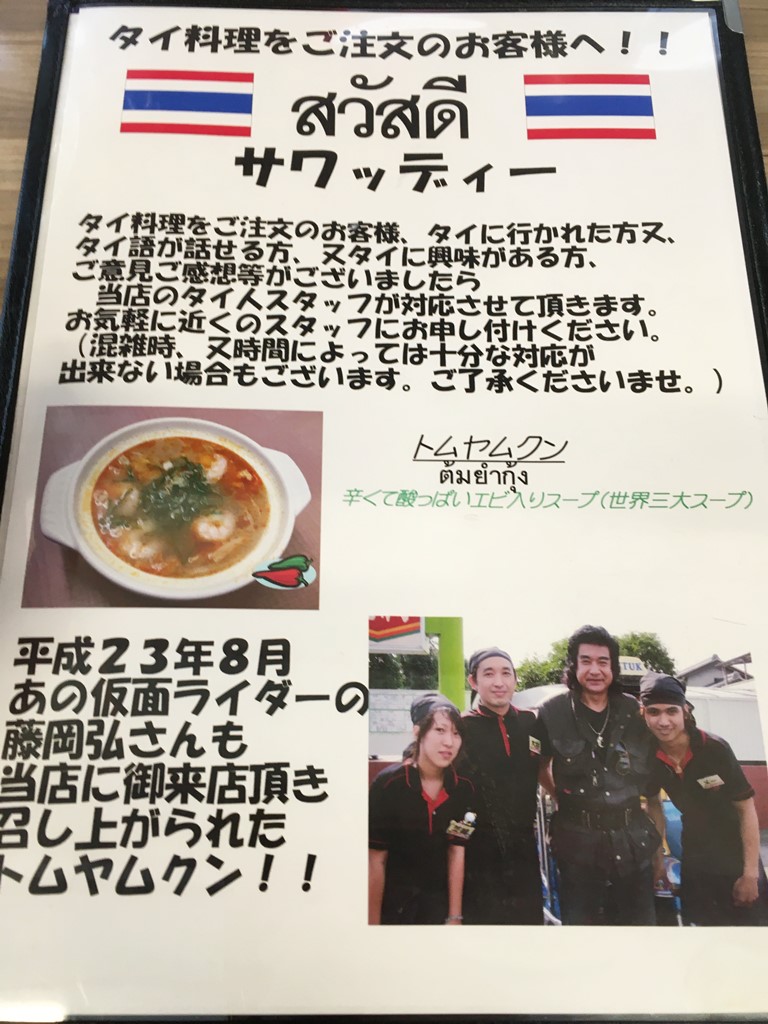 タイ料理をご注文のお客様へ！！
สวัสดี
サワッディー
タイ料理をご注文のお客様、タイに行かれた方又、
タイ語が話せる方、又タイに興味がある方、
ご意見ご感想等がございましたら
当店のタイ人スタッフが対応させて頂きます。
お気軽に近くのスタッフにお申し付けください。
（混雑時、又時間によっては十分な対応が
出来ない場合もございます。ご了承くださいませ。）
トムヤムクン
ต้มยำกุ้ง
辛くて酸っぱいエビ入りスープ(世界三大スープ)
平成２３年８月
あの仮面ライダーの
藤岡弘さんも
当店に御来店頂き
召し上がられた
トムヤムクン！！
TUK